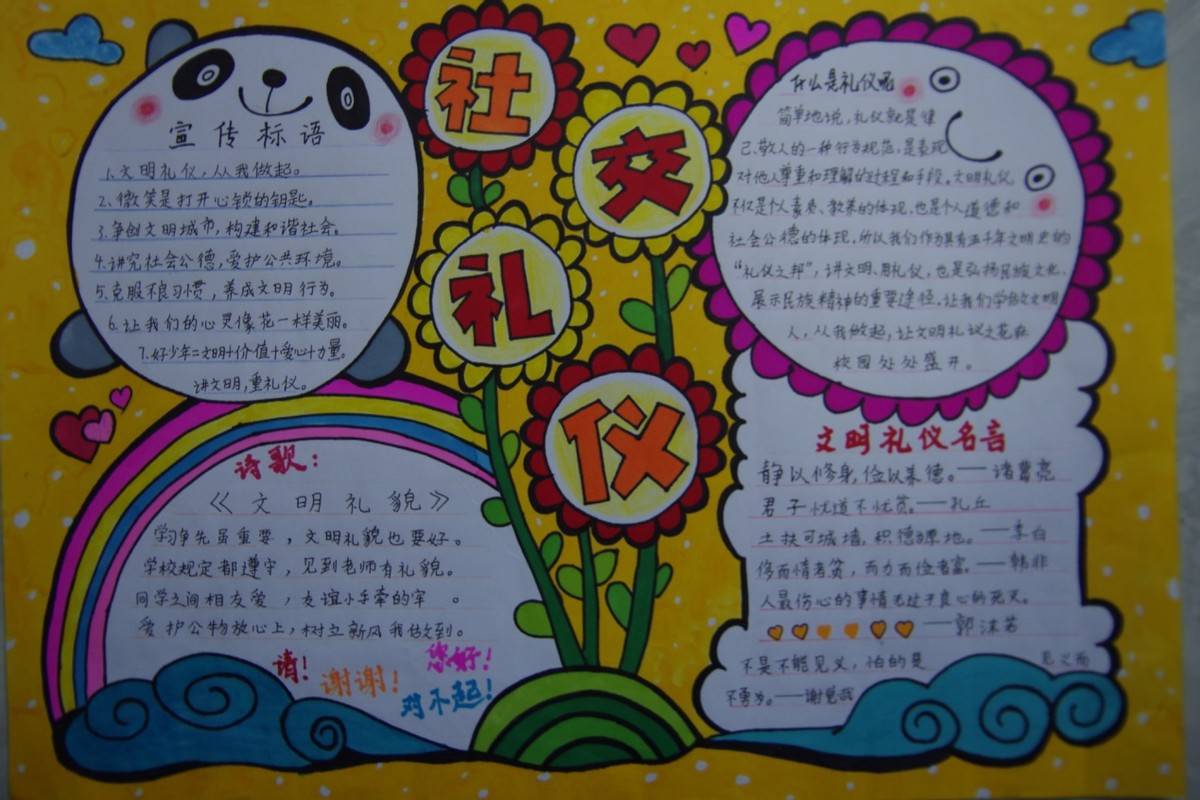 社
交
礼
仪
宣传标语
1.文明礼仪,从我做起。
2、微笑是打开心锁的钥匙。
3.争创文明城市,构建和谐社会。
4.讲究社会公德,爱护公共环境。
5.克服不良习惯,养成文明行为。
6.让我们的心灵像花一样美丽。
7.好少年=文明+价值+爱心+力量。
讲文明,重礼仪。
诗歌:
《文明礼貌》
学习争先虽重要,文明礼貌也要好。
学校规定都遵守,见到老师有礼貌。
同学之间相友爱,友谊小手牵的牢。
爱护公物放心上,树立新风我做到。
请!
谢谢!
您好!
对不起!
什么是礼仪呢
简单地说,礼仪就是律
己、敬人的一种行为规范,是表现
对他人尊重和理解的过程和手段。文明礼仪,
不仅是个人素质、教养的体现,也是个人道德和
社会公德的体现。所以我们作为具有五千年文明史的
“礼仪之邦”,讲文明、用礼仪,也是弘扬民族文化、
展示民族精神的重要途径。让我们学做文明
人,从我做起,让文明礼仪之花在
校园处处盛开。
文明礼仪名言
静以修身,俭以养德。——诸葛亮
君子忧道不忧贫。——孔丘
土扶可城墙,积德为厚地。——李白
侈而惰者贫,而力而俭者富。——韩非
人最伤心的事情无过于良心的死灭。
——郭沫若
不是不能见义,怕的是见义而
不勇为。——谢觉哉